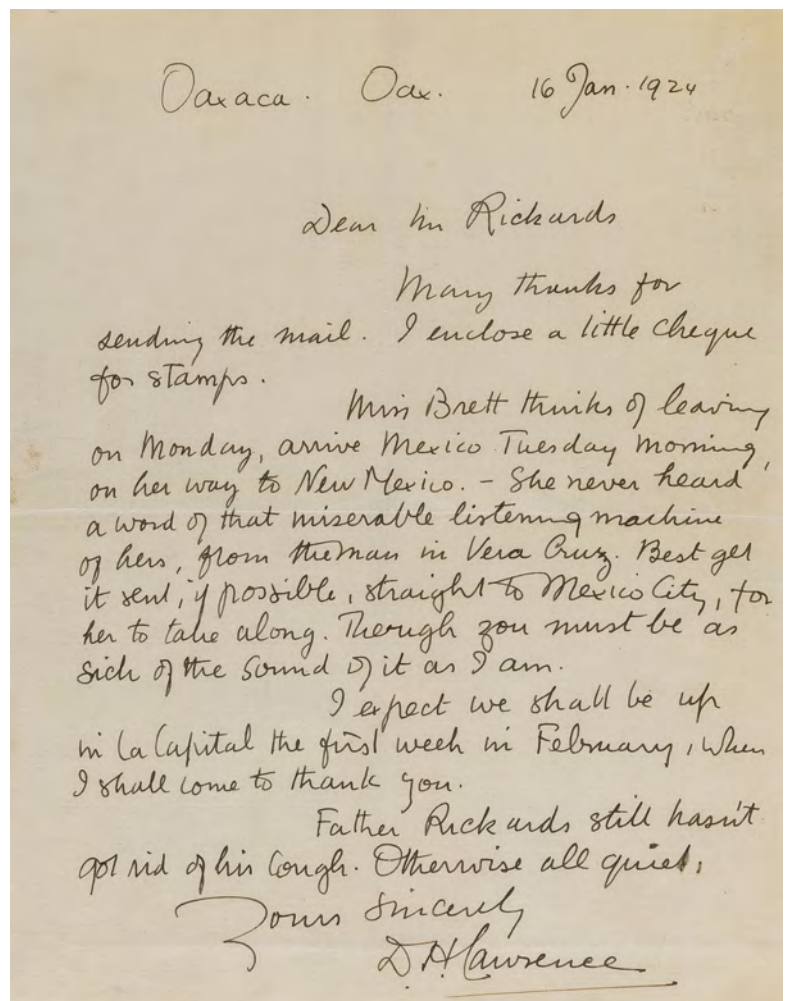 Oaxaca. Oax. 16 Jan. 1924
Dear Mr Rickards
Many thanks for
sending the mail. I enclose a little cheque
for stamps.
Miss Brett thinks of leaving
on Monday, arrive Mexico Tuesday morning,
on her way to New Mexico. – She never heard
a word of that miserable listening machine
of hers, from the man in Vera Cruz. Best get
it sent, if possible, straight to Mexico City, for
her to take along. Though you must be as
sick of the sound of it as I am.
I expect we shall be up
in La Capital the first week in February, when
I shall come to thank you.
Father Rickards still hasn't
got rid of his cough. Otherwise all quiet.
Yours Sincerely
D. H. Lawrence